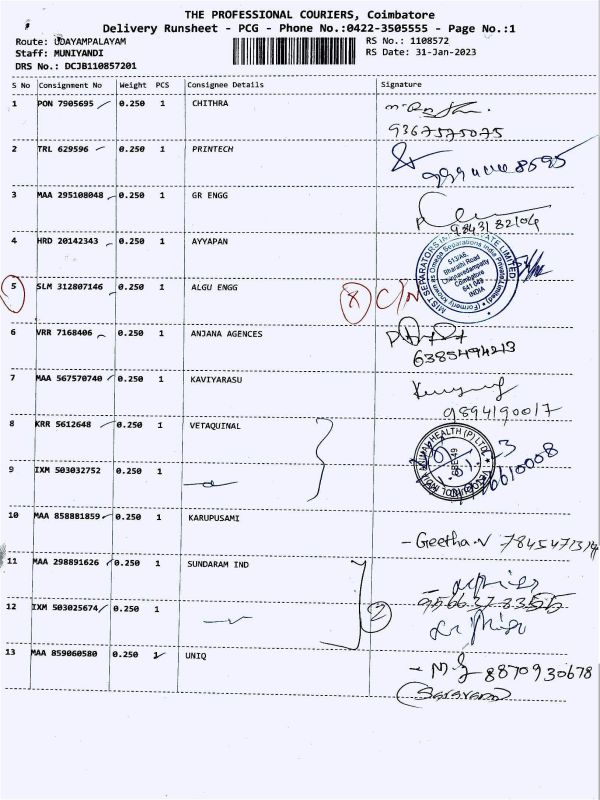 THE PROFESSIONAL COURIERS, Coimbatore
Delivery Runsheet - PCG - Phone No.:0422-3505555 - Page No.:1
Route: UDAYAMPALAYAM
Staff: MUNIYANDI
DRS No.: DCJB110857201
RS No.: 1108572
RS Date: 31-Jan-2023
S No Consignment No Weight PCS Consignee Details Signature
1 PON 7905695 0.250 1 CHITHRA
9367575075
2 TRL 629596 0.250 1 PRINTECH
3 MAA 295108048 0.250 1 GR ENGG
9843182104
4 HRD 20142343 0.250 1 AYYAPAN
513/A8,
Bharathi Road
Coimbatore
641 049
INDIA
5 SLM 312807146 0.250 1 ALGU ENGG
6 VRR 7168406 0.250 1 ANJANA AGENCES
6385494213
7 MAA 567570740 0.250 1 KAVIYARASU
9894190017
8 KRR 5612648 0.250 1 VETAQUINAL
9 IXM 503032752 0.250 1
10 MAA 858881859 0.250 1 KARUPUSAMI
- Geetha.N
11 MAA 298891626 0.250 1 SUNDARAM IND
12 IXM 503025674 0.250 1
2
13 MAA 859060580 0.250 1 UNIQ
8870930678